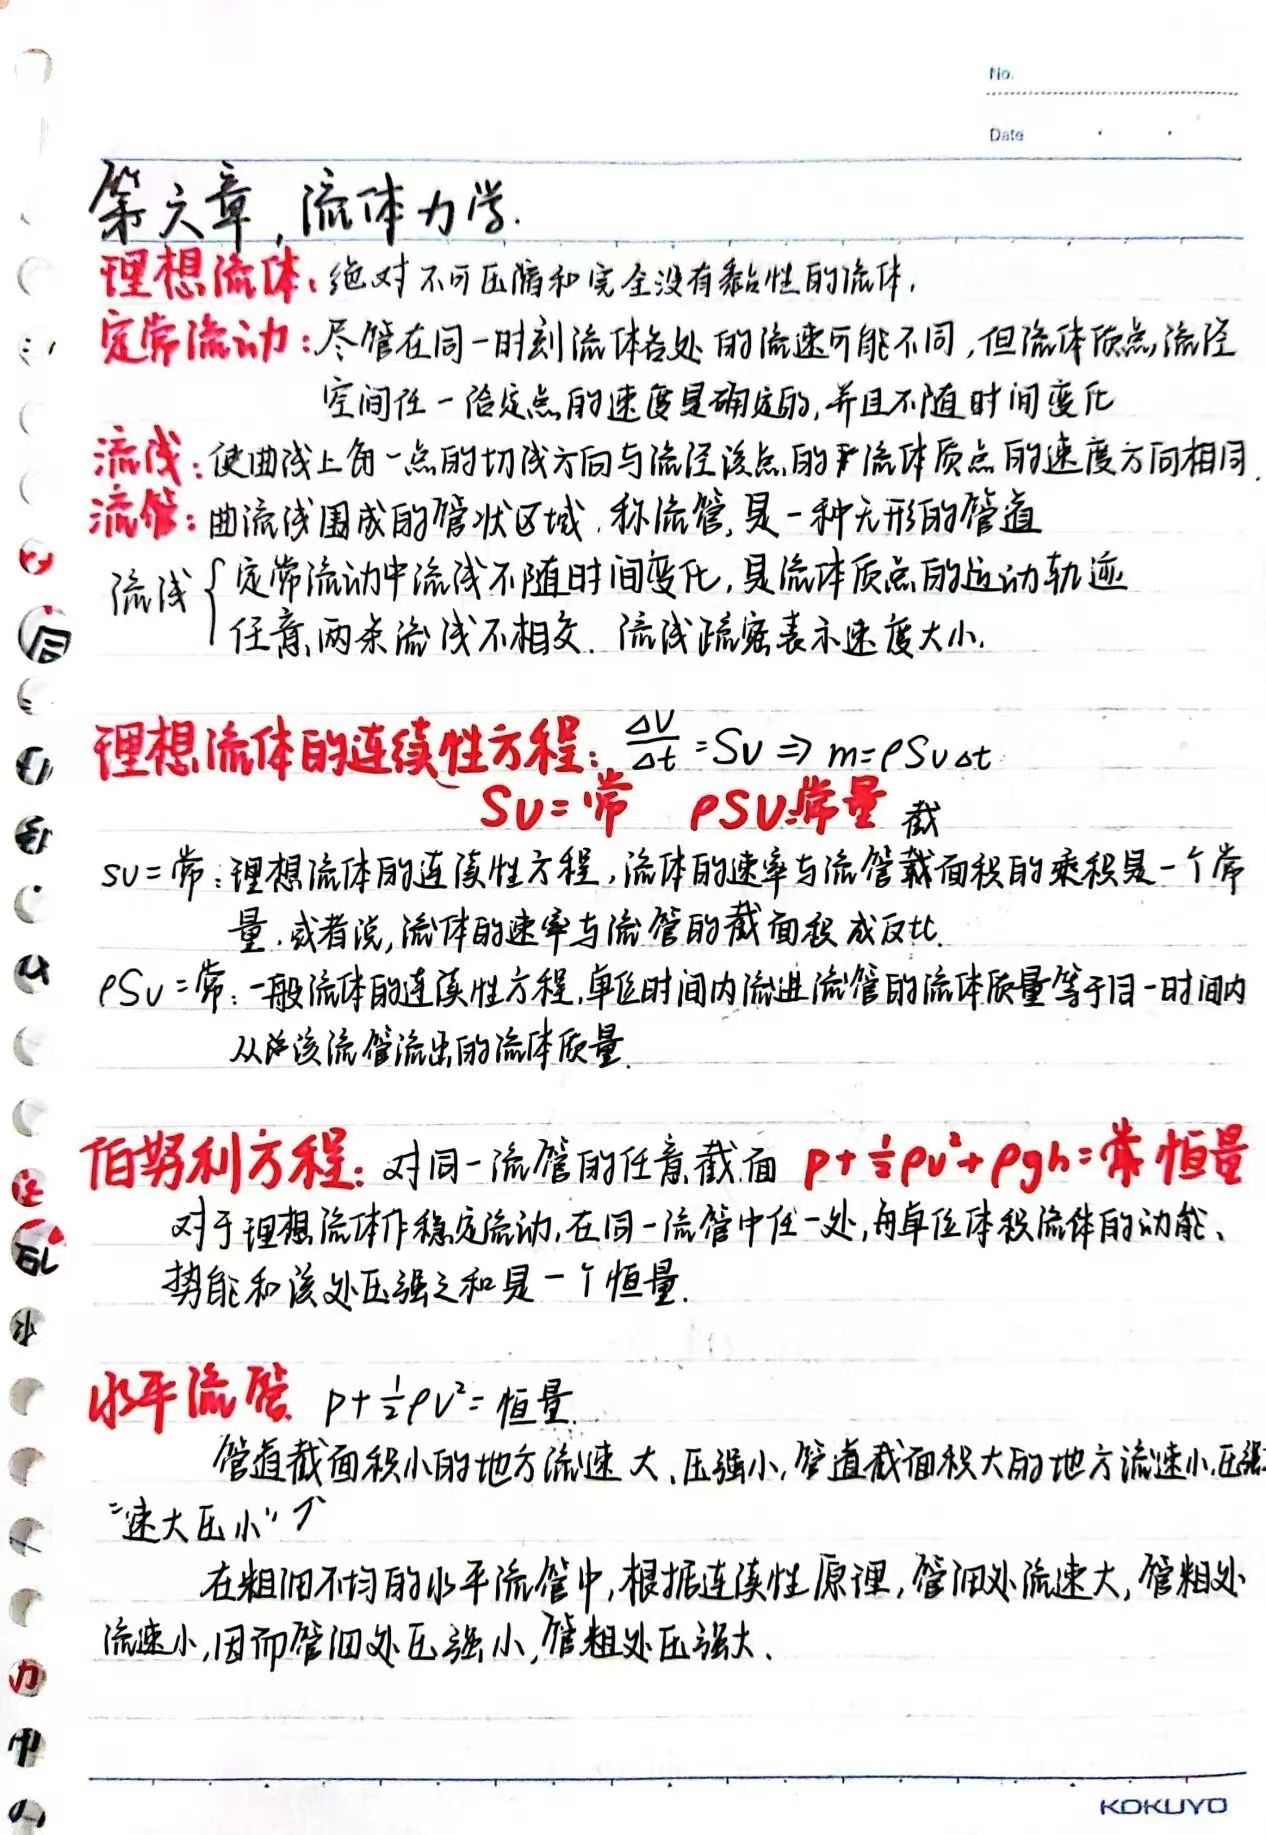 No.
Date
第六章,流体力学.
理想流体:绝对不可压缩和完全没有黏性的流体.
定常流动:尽管在同一时刻流体各处的流速可能不同,但流体质点流径
空间任一给定点的速度是确定的,并且不随时间变化
流线:使曲线上每一点的切线方向与流径该点的流体质点的速度方向相同.
流管:由流线围成的管状区域.称流管,是一种无形的管道
流线{定常流动中流线不随时间变化,是流体质点的运动轨迹
任意两条流线不相交.流线疏密表示速度大小.
理想流体的连续性方程:ΔV/Δt=Sv⇒m=ρSvΔt
Sv=常 ρSv=常量 截
sv=常:理想流体的连续性方程,流体的速率与流管截面积的乘积是一个常
量.或者说,流体的速率与流管的截面积成反比.
ρSv=常:一般流体的连续性方程,单位时间内流进流管的流体质量等于同一时间内
从该流管流出的流体质量.
伯努利方程:对同一流管的任意截面 p+½ρv²+ρgh=常恒量
对于理想流体作稳定流动,在同一流管中任一处,每单位体积流体的动能、
势能和该处压强之和是一个恒量.
水平流管 p+½ρv²=恒量.
管道截面积小的地方流速大、压强小,管道截面积大的地方流速小,压强
“速大压小”
在粗细不均的水平流管中,根据连续性原理,管细处流速大,管粗处
流速小,因而管细处压强小,管粗处压强大.
KOKUYO